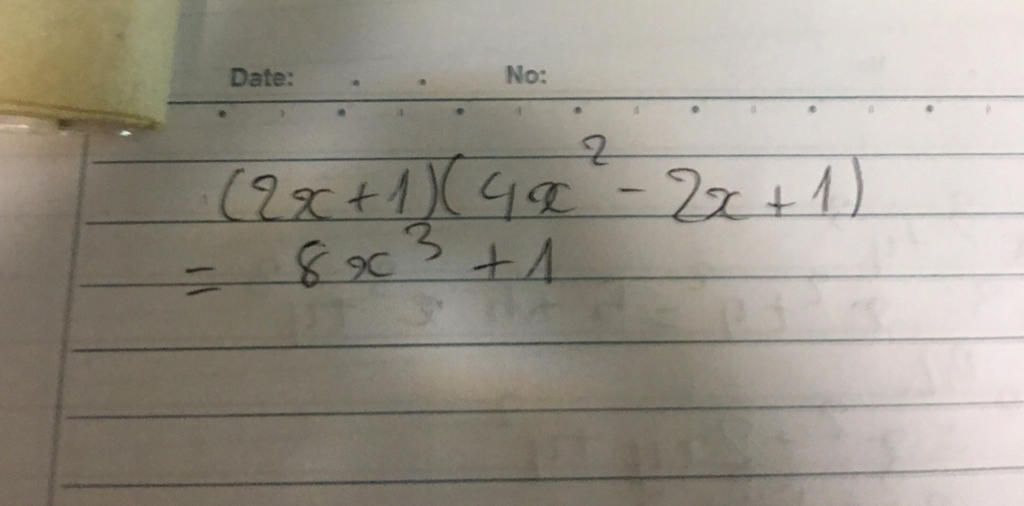 Date: . . No:
(2x+1)(4x² - 2x + 1)
= 8x³ + 1